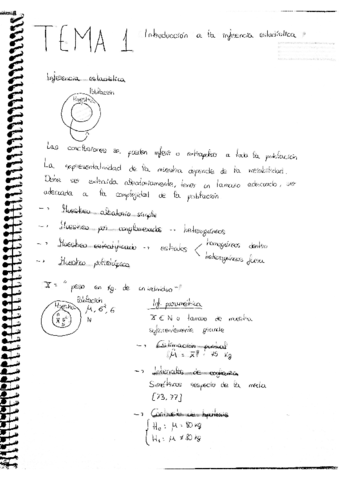 TEMA 1
Introducción a la inferencia estadística
Inferencia estadística
Población
Muestra
Las conclusiones se pueden inferir o extrapolar a toda la población
La representatividad de la muestra depende de la
Debe ser extraída aleatoriamente, tener un tamaño adecuado, ser
adecuada a la complejidad de la población
-> Muestreo aleatorio simple
-> Muestreo por conglomerados -- heterogéneos
-> Muestreo estratificado -- estratos < homogéneos dentro
heterogéneos fuera
-> Muestreo polietápico
X = "peso en kg. de un individuo"
Población
Muestra
μ, σ², σ
N
Inf. paramétrica
X ∈ N o tamaño de muestra
suficientemente grande
-> Estimación puntual
μ̂ = x̄ = 75 kg
-> Intervalos de confianza
Simétricos respecto de la media
[73, 77]
-> Contraste de hipótesis
H₀: μ = 80 kg
H₁: μ ≠ 80 kg